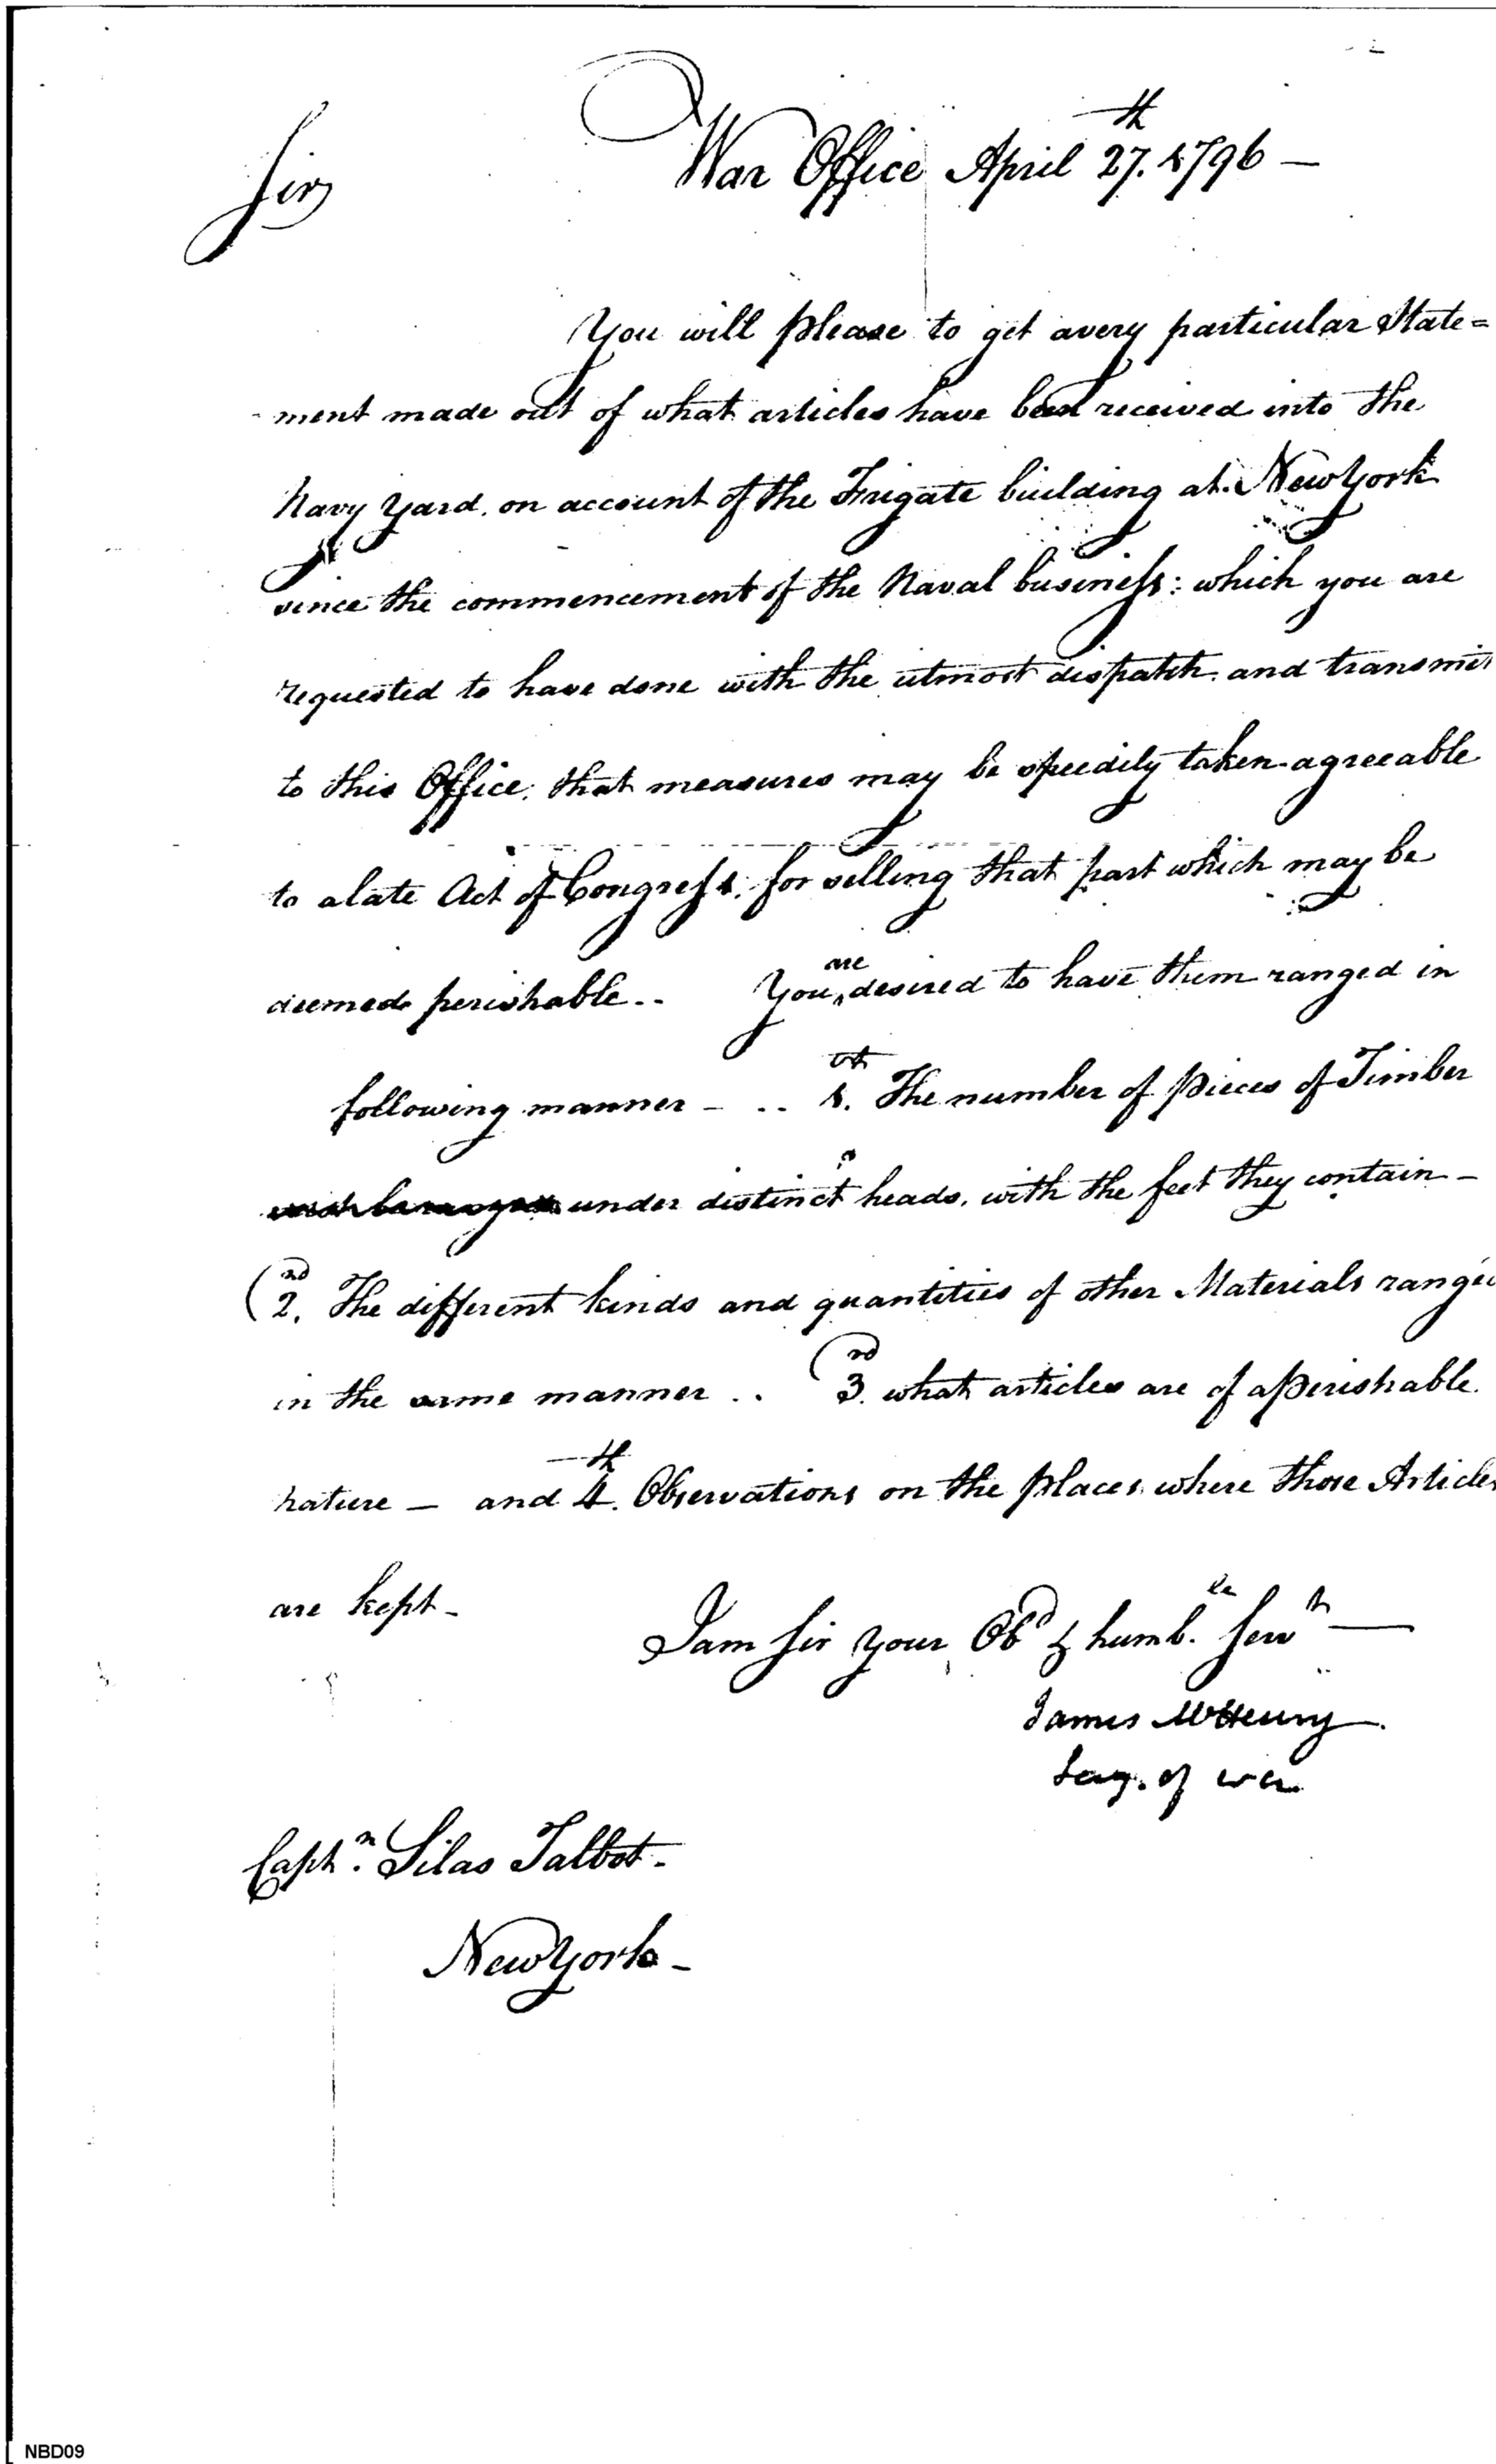 War Office April 27.th 1796 —
Sir
You will please to get a very particular State=
-ment made out of what articles have been received into the
Navy Yard. on account of the Frigate building at New York
since the commencement of the Naval business: which you are
requested to have done with the utmost dispatch. and transmit
to this Office; that measures may be speedily taken agreeable
to a late Act of Congress. for selling that part which may be
deemed perishable.. You are desired to have them ranged in
following manner - .. 1.st The number of pieces of Timber
under distinct heads, with the feet they contain -
2.nd The different kinds and quantities of other Materials ranged
in the same manner .. 3.rd what articles are of a perishable
nature — and 4.th Observations on the places where those Articles
are kept -
I am Sir your Obd & humb.le Servt —
James McHenry
Secy. of war
Capt.n Silas Talbot -
New York -
NBD09